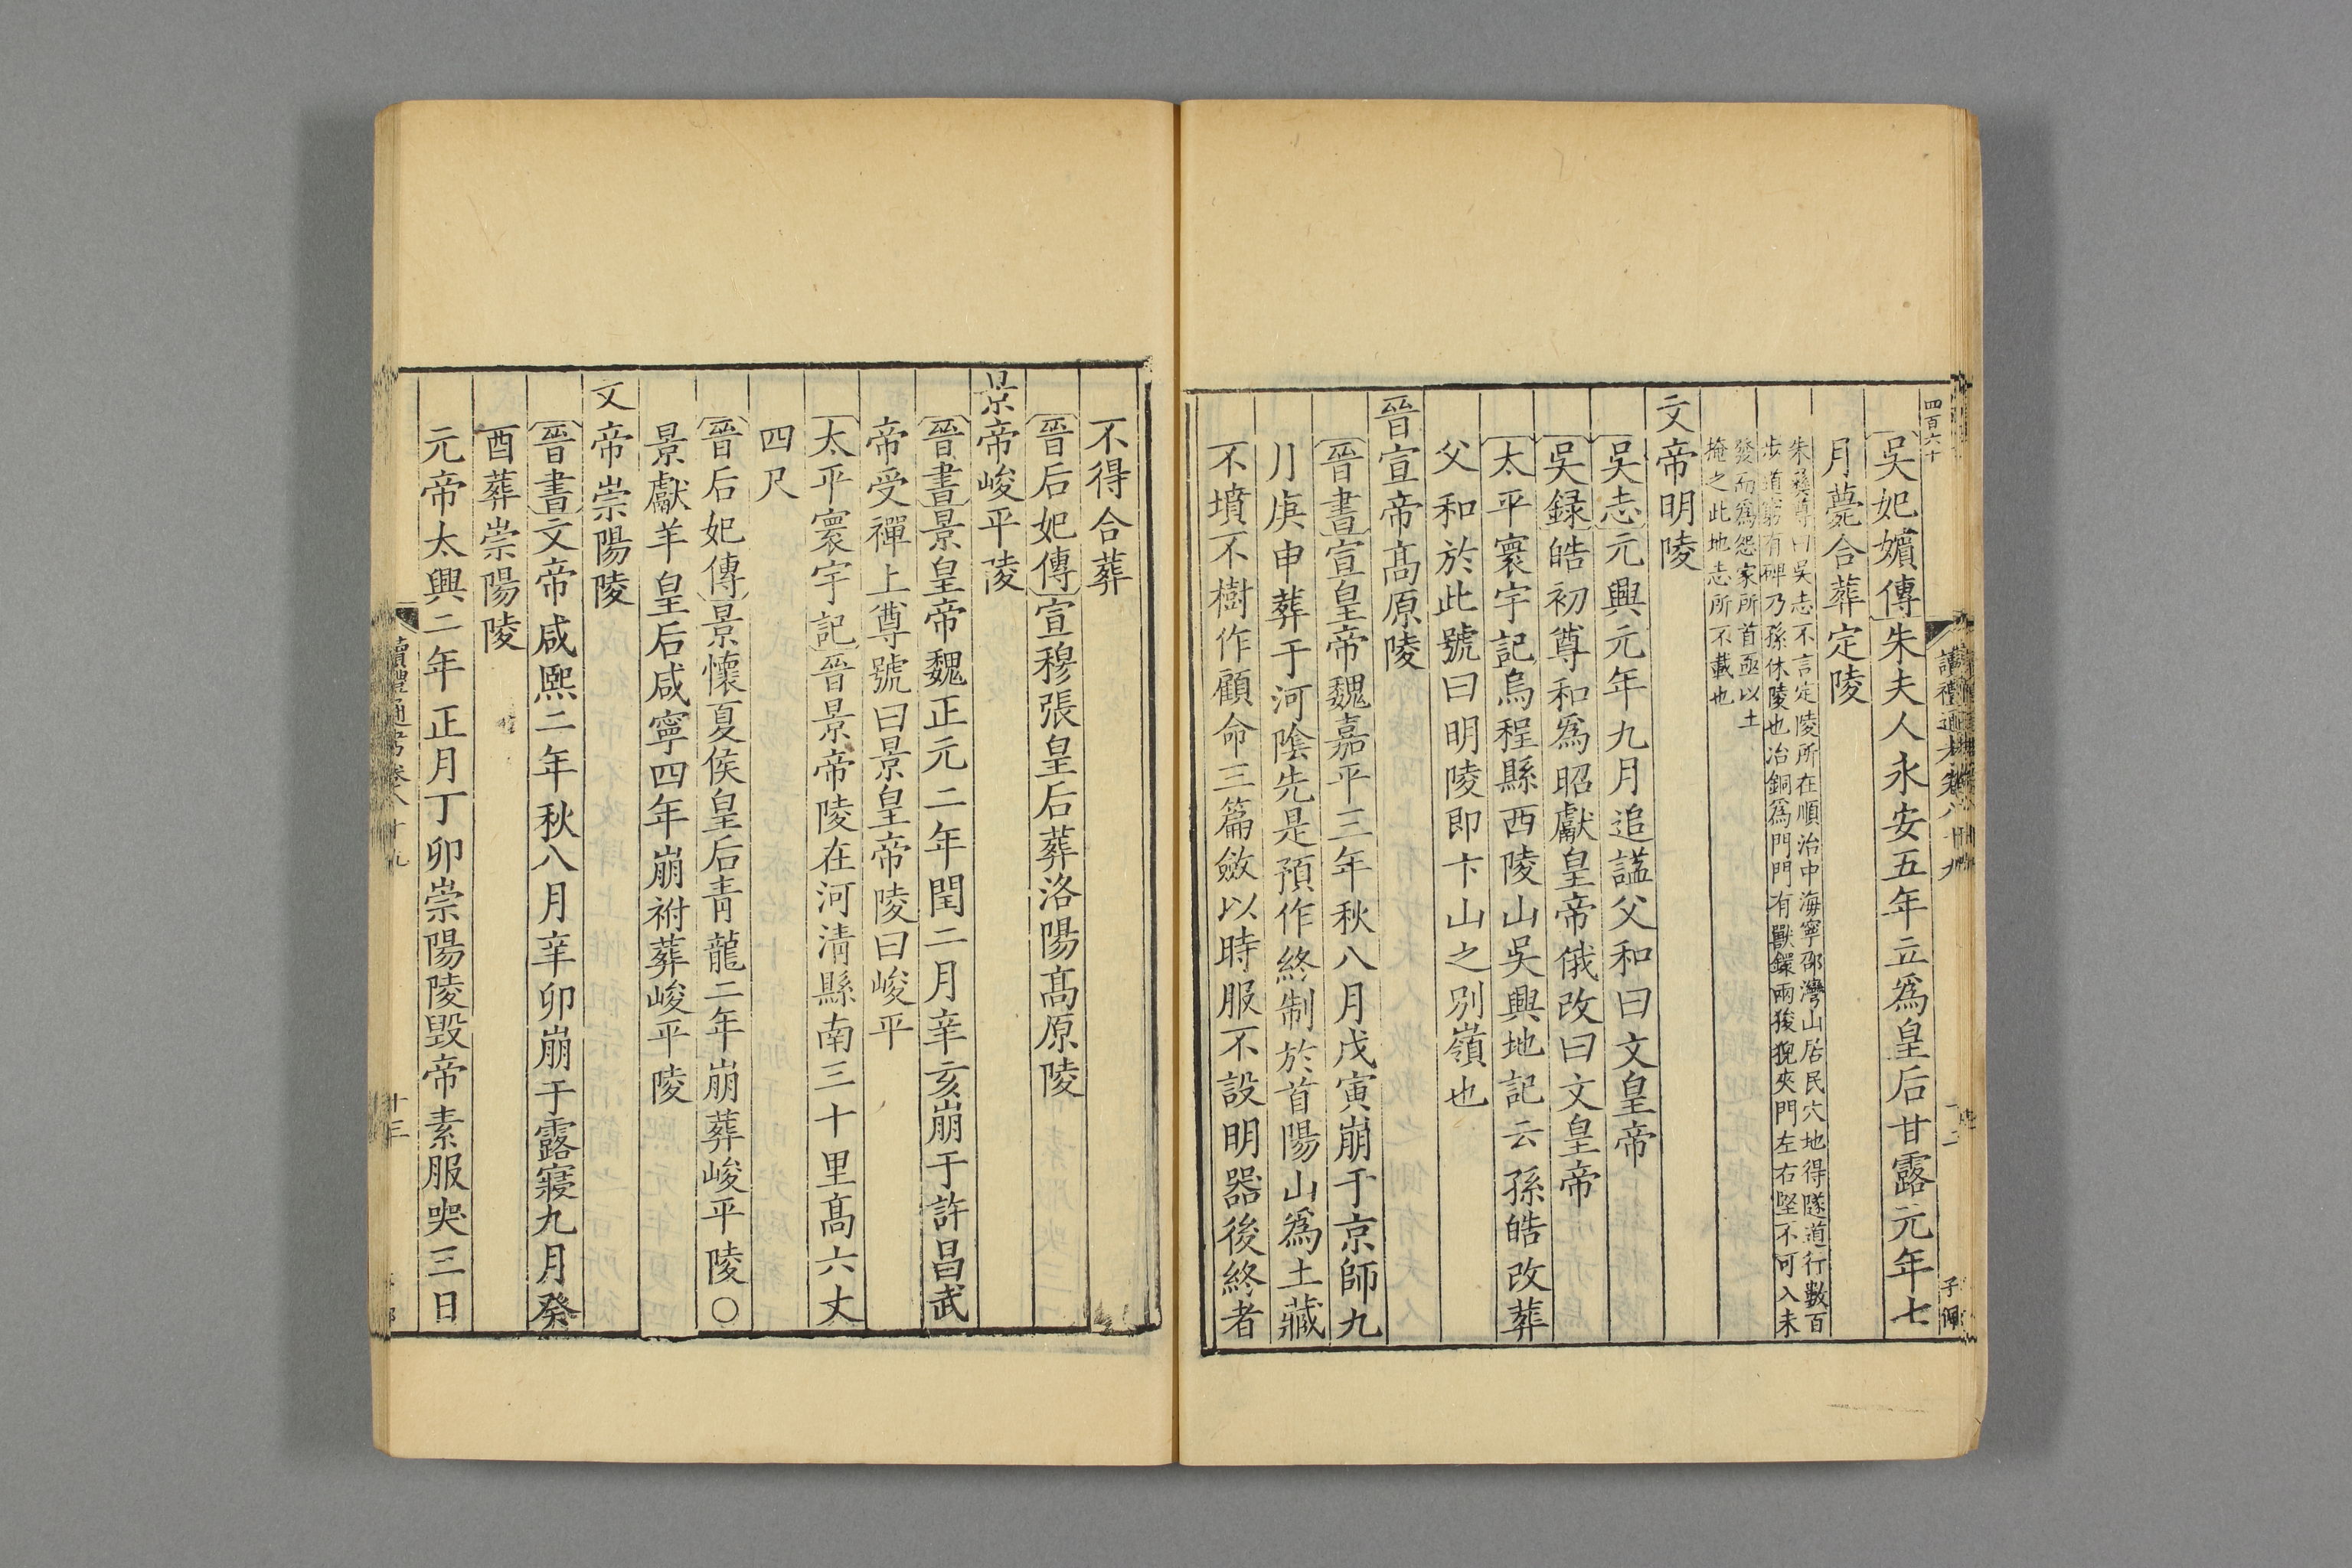 四百六十
讀禮通考卷八十九
十二
子佩
吳妃嬪傳朱夫人永安五年立爲皇后甘露元年七
月薨合葬定陵
朱彝尊曰吳志不言定陵所在順治中海寧邵灣山居民穴地得隧道行數百
步道窮有碑乃孫休陵也冶銅爲門門有獸鐶兩狻猊夾門左右堅不可入未
發而爲怨家所首亟以土
掩之此地志所不載也
文帝明陵
吳志元興元年九月追諡父和曰文皇帝
吳録皓初尊和爲昭獻皇帝俄改曰文皇帝
太平寰宇記烏程縣西陵山吳興地記云孫皓改葬
父和於此號曰明陵即卞山之別嶺也
晉宣帝高原陵
晉書宣皇帝魏嘉平三年秋八月戊寅崩于京師九
月庚申葬于河陰先是預作終制於首陽山爲土藏
不墳不樹作顧命三篇斂以時服不設明器後終者
不得合葬
晉后妃傳宣穆張皇后葬洛陽高原陵
景帝峻平陵
晉書景皇帝魏正元二年閏二月辛亥崩于許昌武
帝受禪上尊號曰景皇帝陵曰峻平
太平寰宇記晉景帝陵在河清縣南三十里高六丈
四尺
晉后妃傳景懷夏侯皇后青龍二年崩葬峻平陵〇
景獻羊皇后咸寧四年崩祔葬峻平陵
文帝崇陽陵
晉書文帝咸熙二年秋八月辛卯崩于露寢九月癸
酉葬崇陽陵
元帝太興二年正月丁卯崇陽陵毀帝素服哭三日
讀禮通考卷八十九